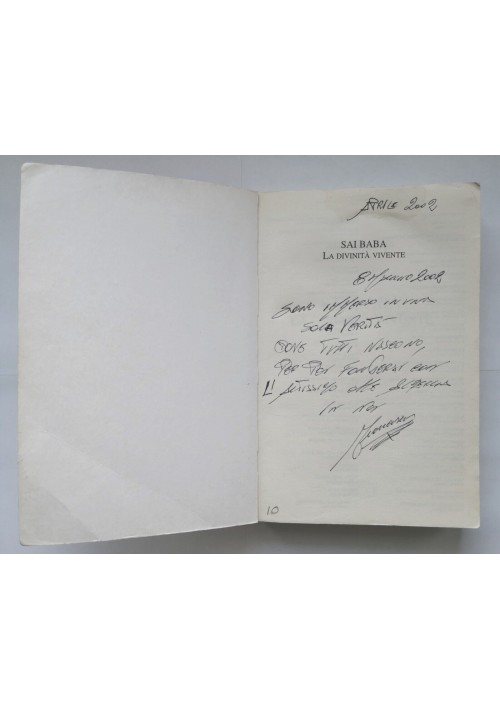 APRILE 2002
SAI BABA
LA DIVINITÀ VIVENTE
2002
SONO IMMERSO IN UNA
SOLA VERITÀ
DOVE TUTTI NASCONO,
PER POI FONDERSI CON
L'ALTISSIMO CHE
IN NOI
10